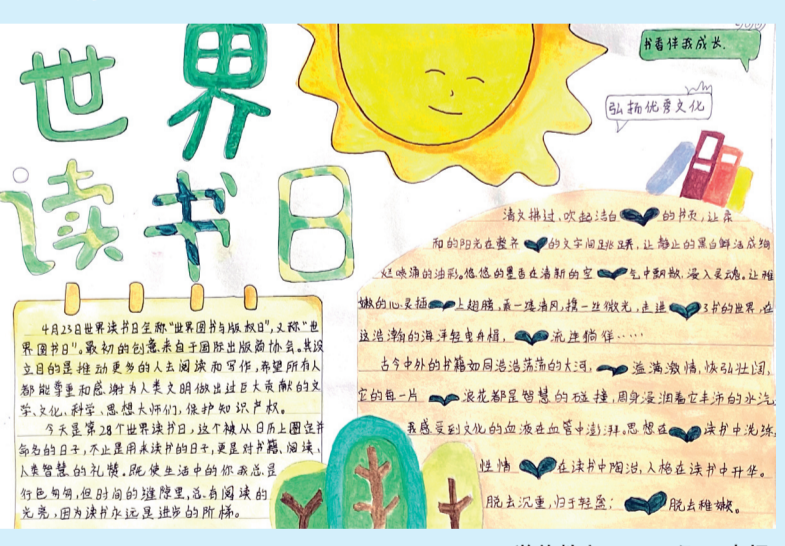 世界
读书日
书香伴我成长.
弘扬优秀文化
4月23日世界读书日全称"世界图书与版权日",又称"世
界图书日"。最初的创意来自于国际出版商协会。其设
立目的是推动更多的人去阅读和写作,希望所有人
都能尊重和感谢为人类文明做出过巨大贡献的文
学、文化、科学、思想大师们,保护知识产权。
今天是第28个世界读书日,这个被从日历上圈定并
命名的日子,不止是用来读书的日子,更是对书籍、阅读、
人类智慧的礼赞。既使生活中的你我总是
行色匆匆,但时间的缝隙里,总有阅读的
光亮,因为读书永远是进步的阶梯。
清文拂过,吹起洁白的书页,让柔
和的阳光在整齐的文字间跳跃,让静止的黑白鲜活成绚
的油彩。悠悠的墨香在清新的空气中飘散,浸入灵魂。让稚
嫩的心灵插上翅膀,乘一缕清风,携一丝微光,走进了书的世界,在
这浩瀚的海洋轻曳舟楫,流连徜徉……
古今中外的书籍如同浩浩荡荡的大河,溢满激情,恢弘壮阔,
它的每一片浪花都是智慧的碰撞,周身浸润着它丰沛的水汽,
我感受到文化的血液在血管中澎湃。思想在读书中洗练,
性情在读书中陶冶,人格在读书中升华。
脱去沉重,归于轻盈;脱去稚嫩。